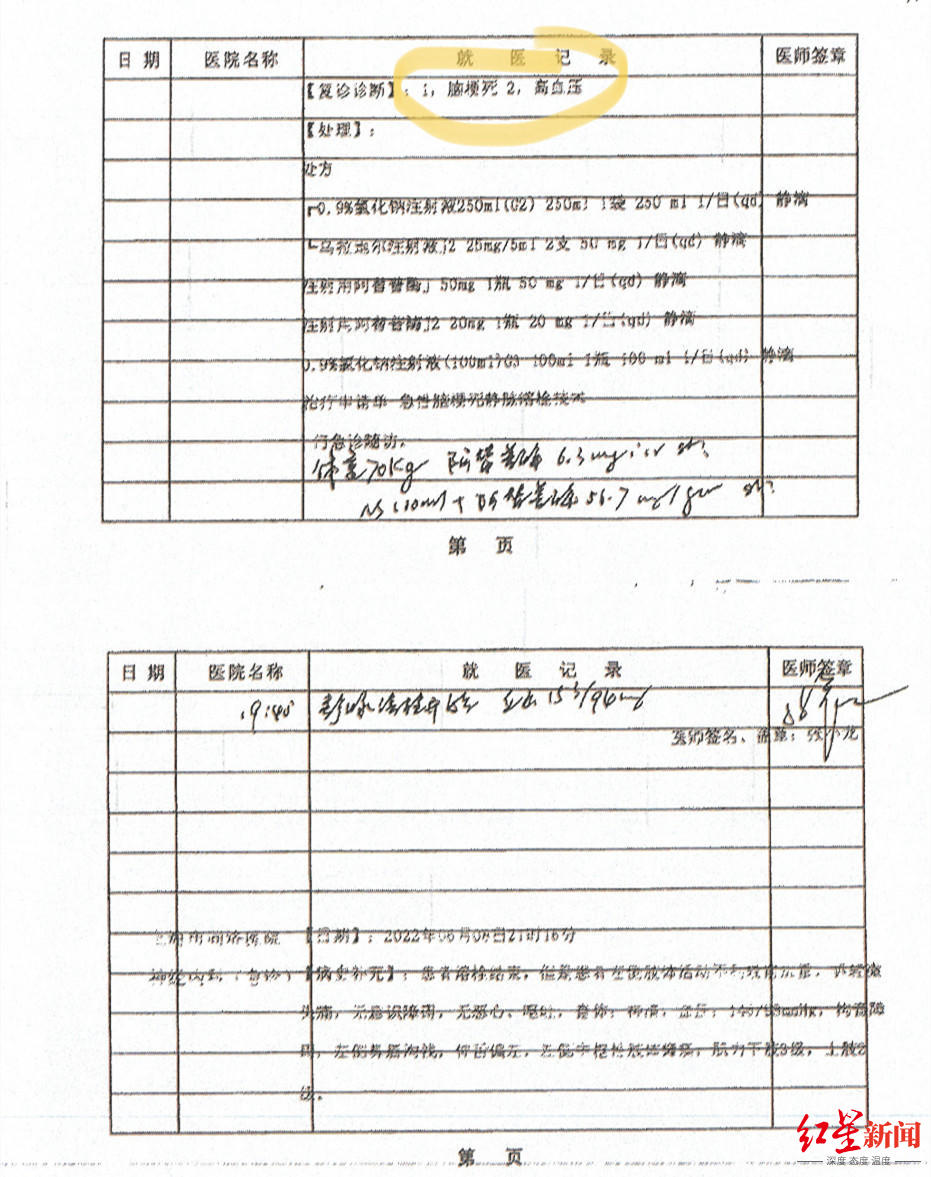 日 期 医院名称 就 医 记 录 医师签章
【复诊诊断】：1，脑梗死 2，高血压
【处理】：
处方
┏0.9%氯化钠注射液250ml(G2) 250ml 1袋 250 ml 1/日(qd) 静滴
┗乌拉地尔注射液j2 25mg/5ml 2支 50 mg 1/日(qd) 静滴
注射用阿替普酶j 50mg 1瓶 50 mg 1/日(qd) 静滴
注射用阿替普酶j2 20mg 1瓶 20 mg 1/日(qd) 静滴
0.9%氯化钠注射液(100ml)G3 100ml 1瓶 100 ml 1/日(qd) 静滴
治疗申请单 急性脑梗死静脉溶栓技术
行急诊随访.
体重70kg 阿替普酶 6.3mg iv
NS 100ml + 阿替普酶 56.7 mg
第 页
日 期 医院名称 就 医 记 录 医师签章
19:40
医师签名、盖章：张小龙
同济医院 【日期】：2022年06月08日21时16分
神经内科(急诊) 【病史补充】：患者溶栓结束，患者左侧肢体活动不
头痛，无意识障碍，无恶心、呕吐，查体：神清，血压：mmHg，构音障
碍，左侧鼻唇沟浅，伸舌偏左，左侧肢体瘫痪，肌力下肢3级，上肢2
级.
第 页
红星新闻
深度 态度 温度